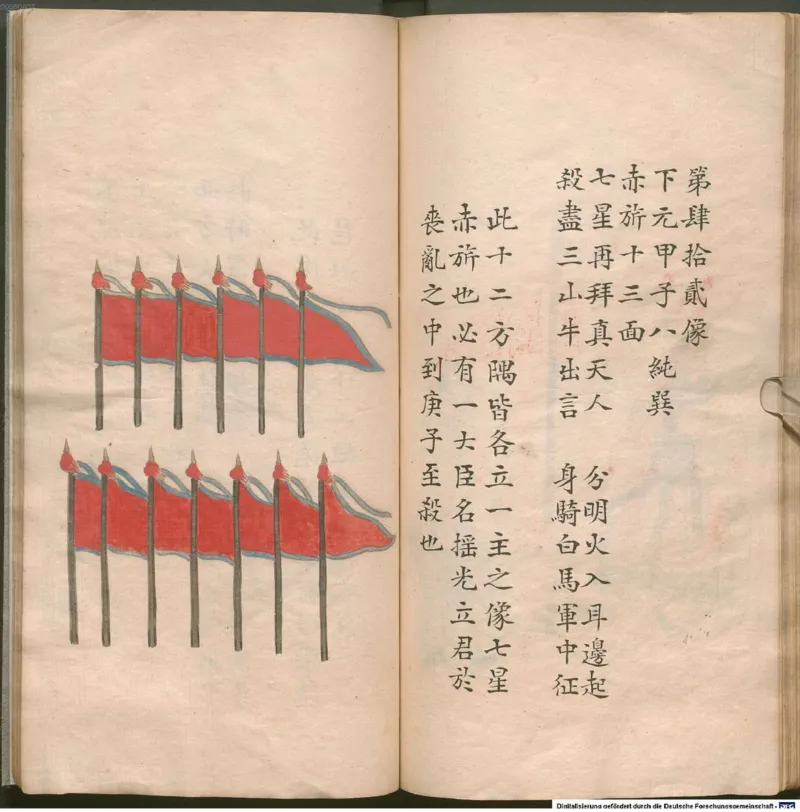 第肆拾貳像
下元甲子八純巽
赤旂十三面
七星再拜真天人 分明火入耳邊起
殺盡三山牛出言 身騎白馬軍中征
此十二方隅皆各立一主之像七星
赤旂也必有一大臣名摇光立君於
喪亂之中到庚子至殺也
Digitalisierung gefördert durch die Deutsche Forschungsgemeinschaft - DFG